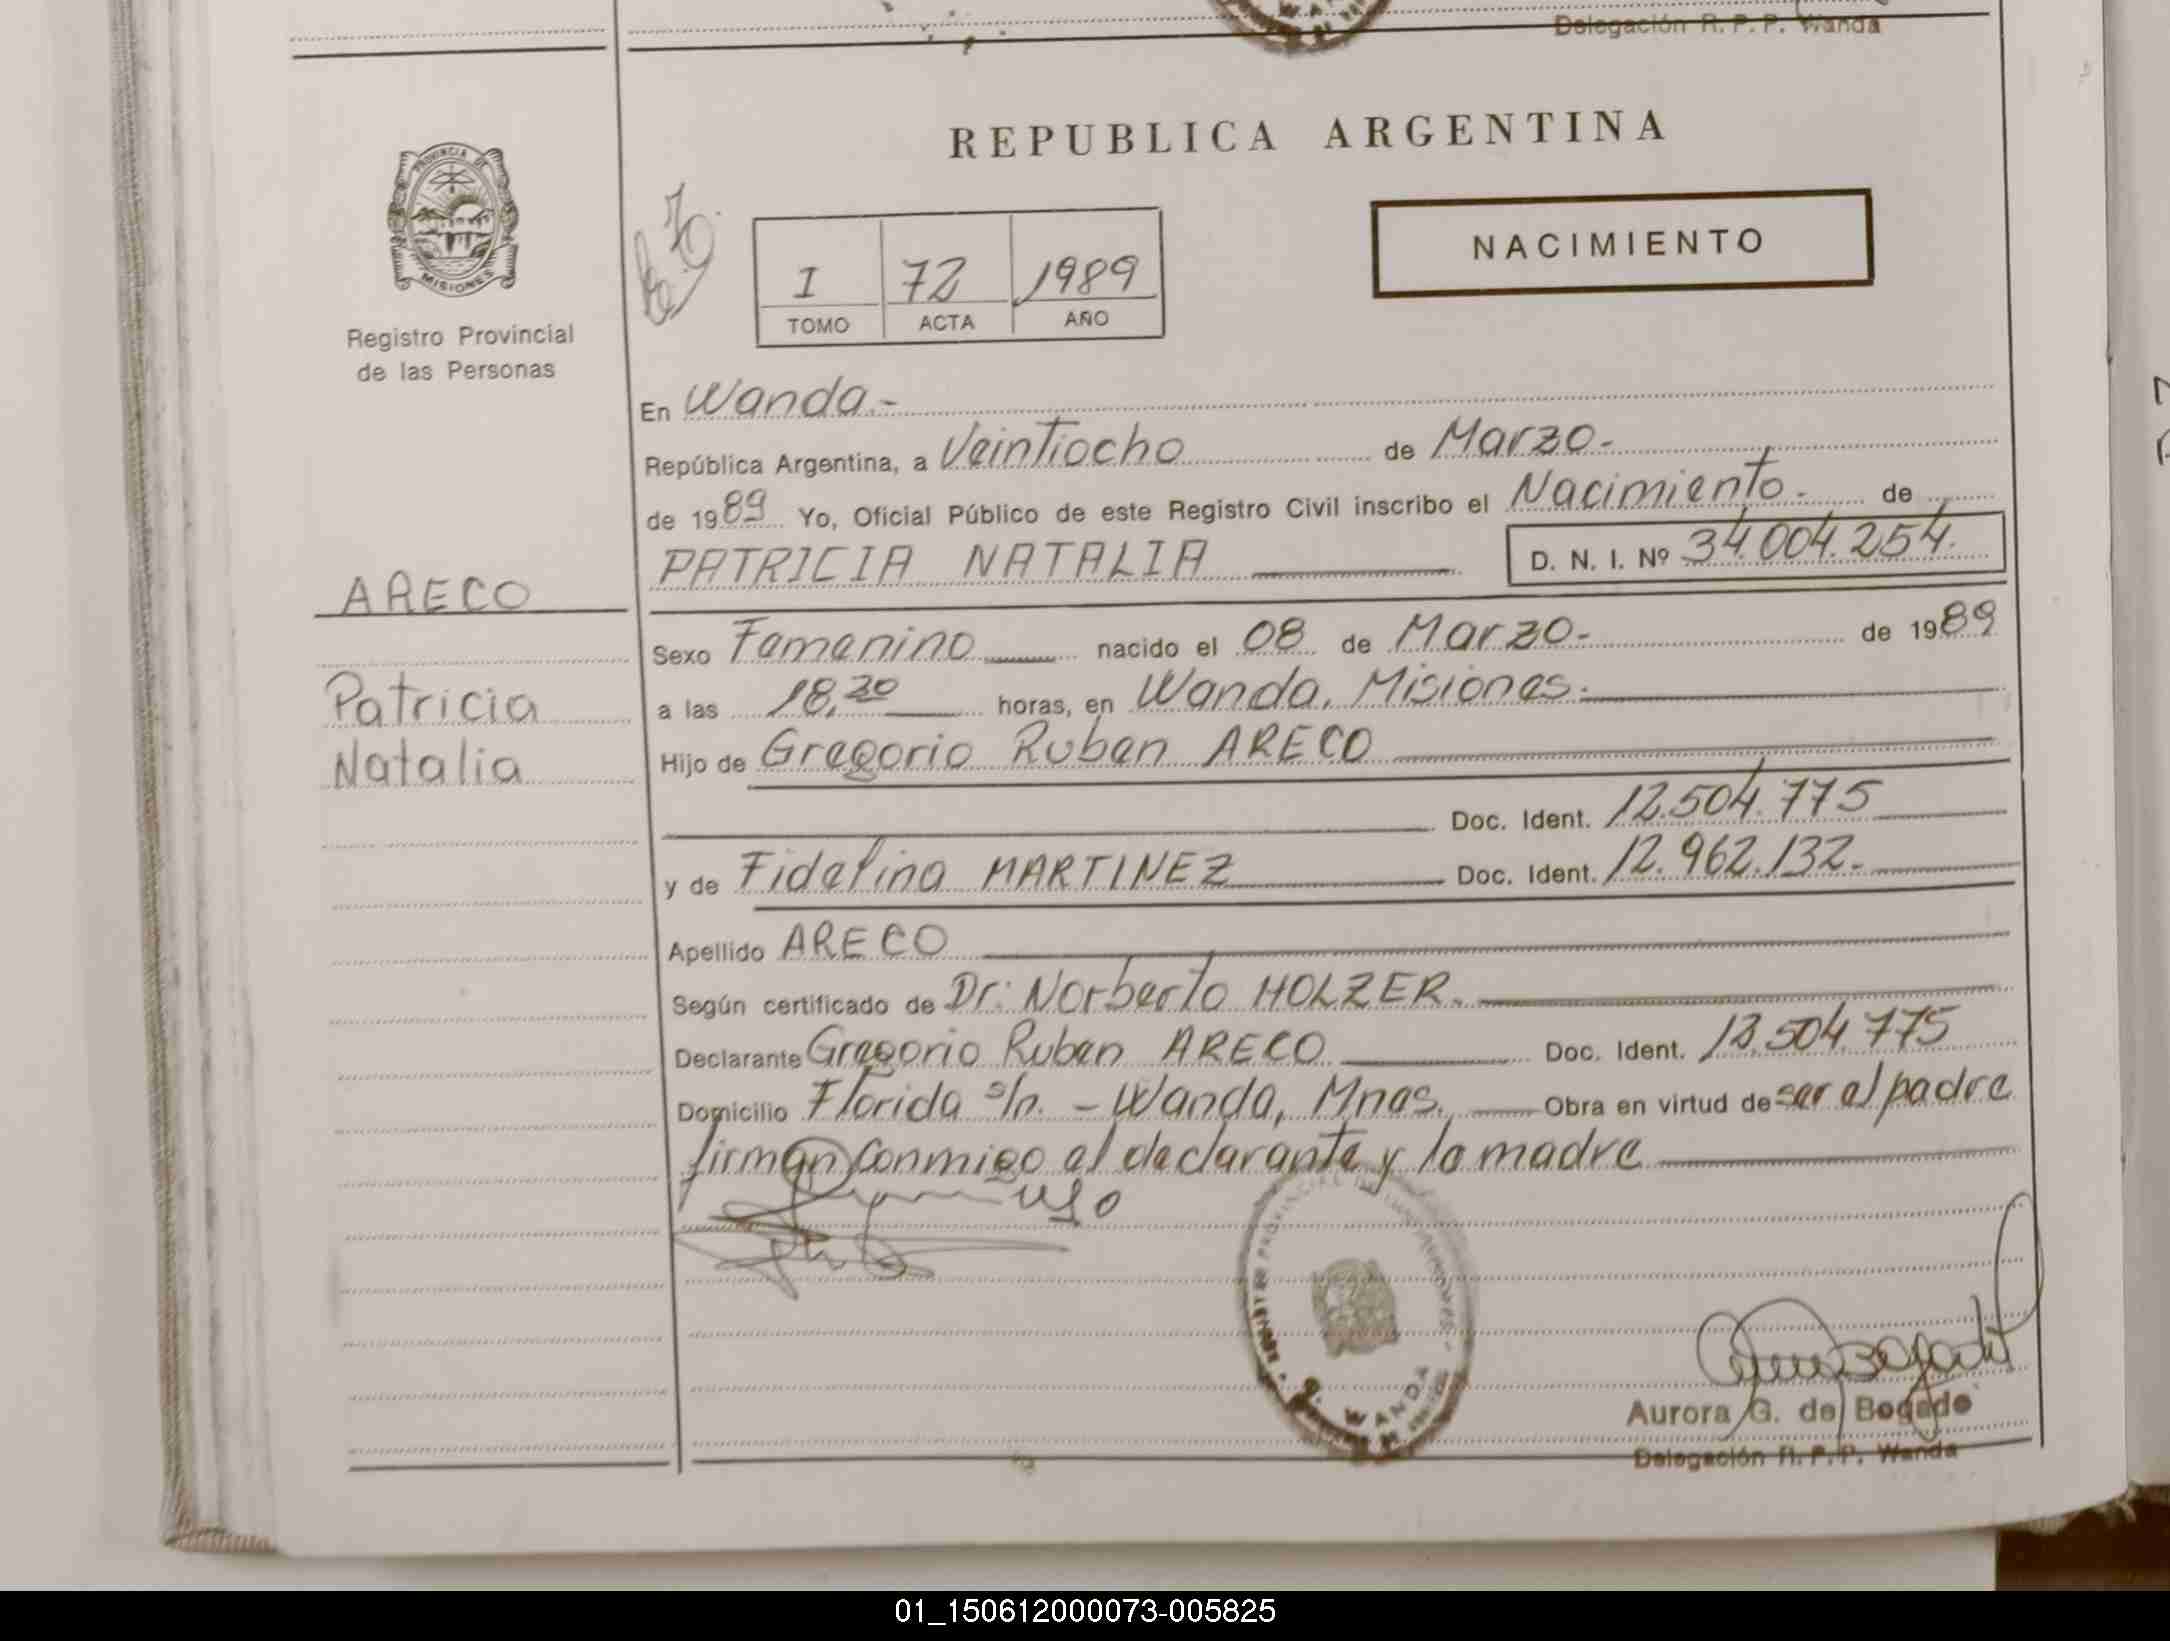 Delegación R. P. P. Wanda
REPUBLICA ARGENTINA
PROVINCIA DE
MISIONES
Registro Provincial
de las Personas
I 72 1989
TOMO ACTA AÑO
NACIMIENTO
En Wanda.-
República Argentina, a Veintiocho de Marzo.-
de 1989 Yo, Oficial Público de este Registro Civil inscribo el Nacimiento.- de
PATRICIA NATALIA D. N. I. Nº 34.004.254.
ARECO
Patricia
Natalia
Sexo Femenino nacido el 08 de Marzo.- de 1989
a las 18,30 horas, en Wanda, Misiones.-
Hijo de Gregorio Ruben ARECO
Doc. Ident. 12.504.775
y de Fidelina MARTINEZ Doc. Ident. 12.962.132.-
Apellido ARECO
Según certificado de Dr: Norberto HOLZER.
Declarante Gregorio Ruben ARECO Doc. Ident. 12.504.775
Domicilio Florida s/n. - Wanda, Mnes. Obra en virtud de ser el padre
firman conmigo el declarante y la madre
WANDA
Aurora G. de Bogado
Delegación R. P. P. Wanda
01_150612000073-005825